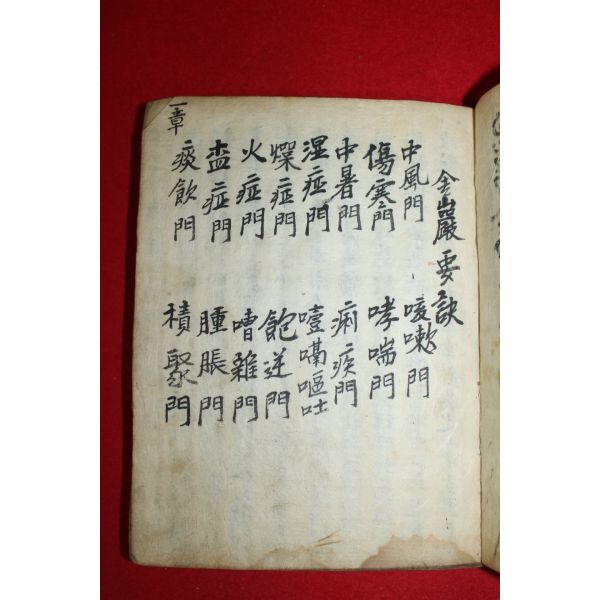 金巖要訣
中風門
傷寒門
中暑門
湿症門
燥症門
火症門
症門
痰飲門
咳嗽門
哮喘門
痢疾門
噎嗝嘔吐
飽逆門
嘈雜門
腫脹門
積聚門
一章